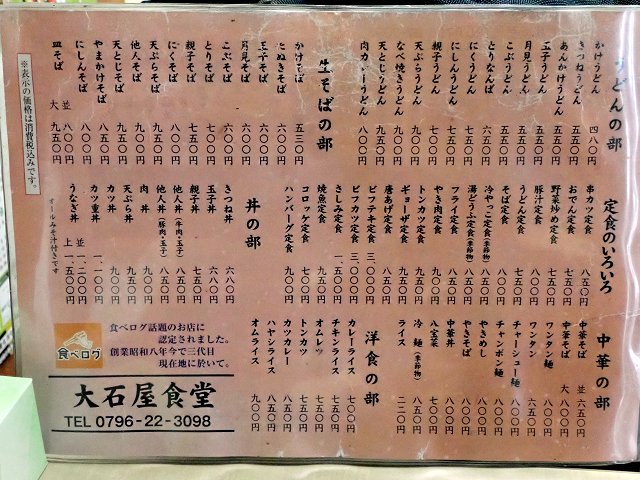 うどんの部
かけうどん 四八〇円
きつねうどん 五五〇円
あんかけうどん 五五〇円
玉子うどん 五五〇円
月見うどん 五五〇円
こぶうどん 五五〇円
とりなんば 六五〇円
にくうどん 七五〇円
にしんうどん 七五〇円
親子うどん 七〇〇円
天ぷらうどん 八〇〇円
なべ焼きうどん 九〇〇円
天とじうどん 九〇〇円
肉カレーうどん 八〇〇円
生そばの部
かけそば 五三〇円
たぬきそば 六〇〇円
玉子そば 六〇〇円
月見そば 六〇〇円
こぶそば 六〇〇円
とりそば 七〇〇円
親子そば 七五〇円
にくそば 八〇〇円
天ぷらそば 八五〇円
他人そば 八五〇円
天とじそば 九五〇円
やまかけそば 八五〇円
にしんそば 八〇〇円
皿そば 並 八〇〇円
大 九五〇円
※表示の価格は消費税込みです。
定食のいろいろ
串カツ定食 八五〇円
おでん定食 七五〇円
野菜炒め定食 八五〇円
豚汁定食 八〇〇円
うどん定食 七五〇円
そば定食 八〇〇円
冷やっこ定食(季節物)
湯どうふ定食(季節物) 七五〇円
フライ定食 九五〇円
やき肉定食 九〇〇円
トンカツ定食 九五〇円
ギョーザ定食 八五〇円
唐あげ定食 八五〇円
ビフテキ定食 三、〇〇〇円
ビフカツ定食 三、〇〇〇円
さしみ定食
焼魚定食 九五〇円
コロッケ定食
ハンバーグ定食 九〇〇円
丼の部
きつね丼 六八〇円
玉子丼 六八〇円
親子丼 七五〇円
他人丼(牛肉・玉子)
他人丼(豚肉・玉子)
肉丼 九〇〇円
天ぷら丼 九〇〇円
カツ丼 九〇〇円
カツ重丼 一、一〇〇円
うなぎ丼 並 一、二〇〇円
上 一、五〇〇円
オールみそ汁付きです
中華の部
中華そば 並 六五〇円
中華そば 大 八〇〇円
ワンタン麺 八五〇円
ワンタン 六五〇円
チャーシュー麺 八五〇円
チャンポン麺 八〇〇円
やきめし 八〇〇円
やきそば 八五〇円
中華丼 八五〇円
八宝菜 八五〇円
冷麺(季節物)
ライス 二二〇円
洋食の部
カレーライス 七〇〇円
チキンライス 八五〇円
オムレツ 八五〇円
トンカツ 八五〇円
カツカレー 九五〇円
ハヤシライス 八五〇円
オムライス 九〇〇円
食べログ話題のお店に
認定されました。
創業昭和八年今で三代目
現在地に於いて。
食べログ
大石屋食堂
TEL 0796-22-3098